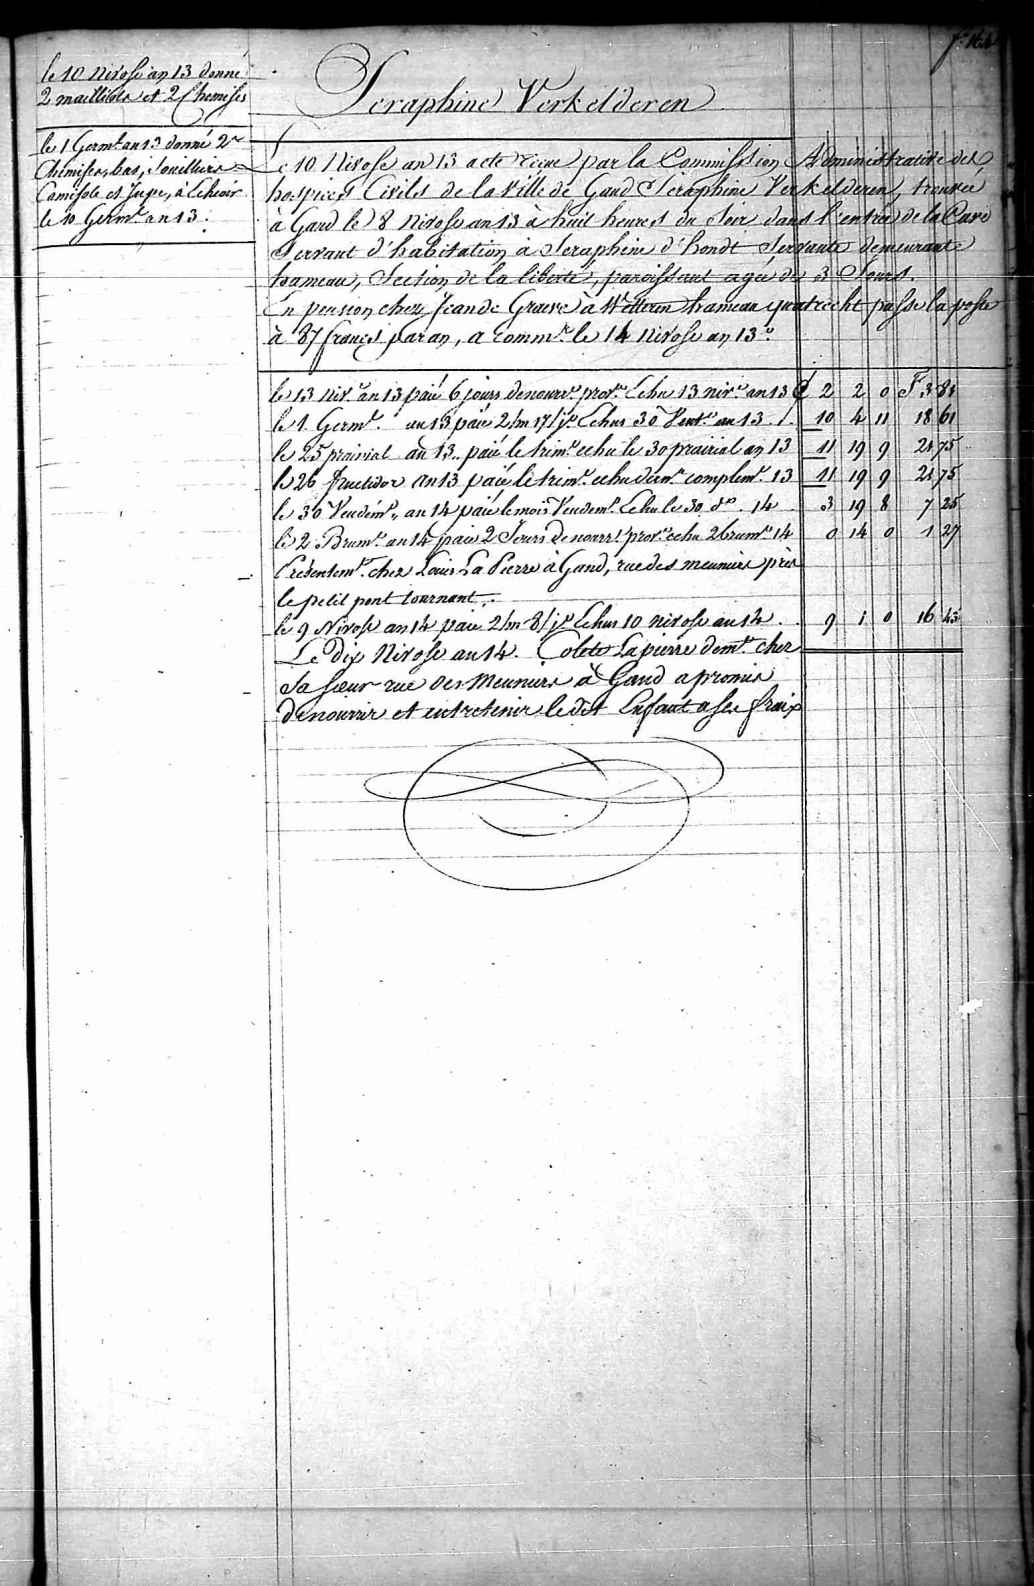 f° 164
le 10 Nivose an 13 donné
2 maillots et 2 Chemises
le 1 Germ.l an 13 donné 2
Chemises, bas, Souilliers
Camisole et Jupe, à Echeoir
le 10 Germ.l an 13.
Seraphine Verkelderen
Le 10 Nivose an 13 a eté reçue par la Commission Administrative des
hospices Civils de la Ville de Gand Seraphine Verkelderen, trouvée
à Gand le 8 Nivose an 13 à huit heures du Soir dans l'entrée de la Cave
Servant d'habitation à Seraphine d'hondt Servante demeurante
hameau, Section de la liberté, paroissant agée de 3 Jours.
En pension chez Jean de Graeve à Wetteren hameau quatrecht passe la poste
à 87 francs par an, a Comm.r le 14 nivose an 13.
le 13 niv.e an 13 paié 6 jours de nourr.e prov.re Echu 13 niv.e an 13 £ 2 2 0 F 3 81
le 1 Germ.l an 13 paié 2/m 17/j.s Echus 30 Vent.e an 13 . 10 4 11 18 61
le 25 prairial an 13.. paié le trim.e echu le 30 prairial an 13 11 19 9 21 75
le 26 fructidor an 13 paié le trim.e echu d.er complem.re 13 11 19 9 21 75
le 30 Vendém.re an 14 paié le mois Vendem.re Echu le 30 d.o 14 3 19 8 7 25
le 2 Brum.e an 14 paié 2 Jours de nourr.e prov.re echu 2 brum.e 14 0 14 0 1 27
Présentem.t chez Louis La Pierre à Gand, rue des meuniers près
le petit pont tournant.
le 9 Nivose an 14 paié 2/m 8/j.s Echus 10 nivose an 14 . 9 1 0 16 43
Le dix Nivose an 14. Colette Lapierre dem.t chez
Sa Sœur rue des Meuniers à Gand a promis
de nourrir et entretenir le dit Enfant a ses fraix